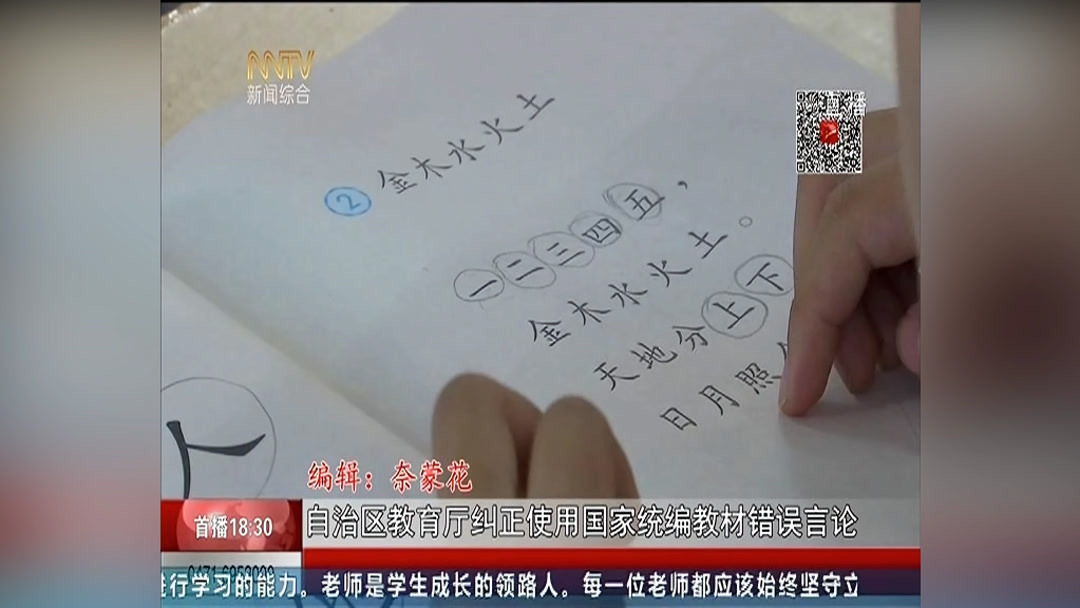 NMTV
新闻综合
② 金木水火土
一二三四五，
金木水火土。
天地分上下
日月照
编辑：奈蒙花
首播18:30
自治区教育厅纠正使用国家统编教材错误言论
行学习的能力。老师是学生成长的领路人。每一位老师都应该始终坚守立